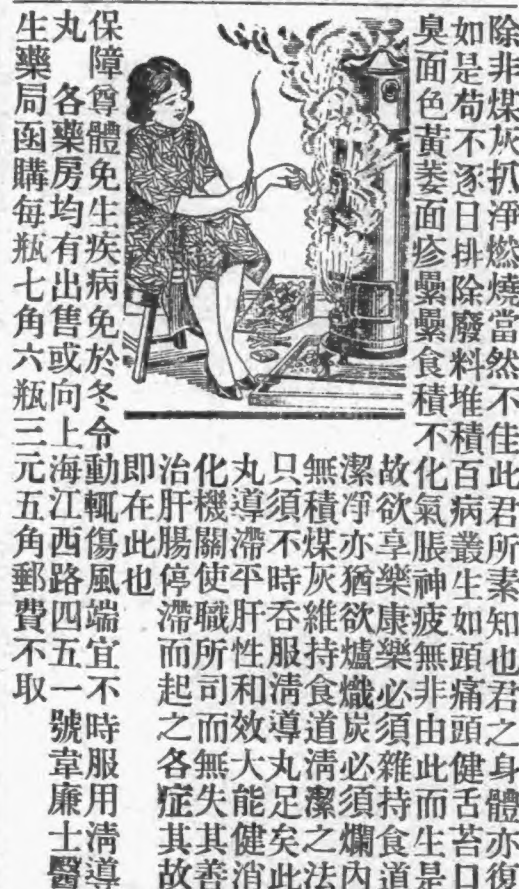 除非煤灰扒淨燃燒當然不佳此君所素知也君之身體亦復
如是苟不逐日排除廢料堆積百病叢生如頭痛頭健舌苔口
臭面色黃萎面疹纍纍食積不化氣脹神疲無非由此而生是
故欲享樂康樂必須雜持食道
潔淨亦猶欲爐熾炭必須爛內
無積煤灰維持食道清潔之法
只須不時吞服清導丸足矣此
丸導滯平肝性和效大能健消
化機關使職所司而無失其善
治肝腸停滯而起之各症其故
即在此也
保障尊體免生疾病免於冬令動輒傷風端宜不時服用清導
丸　各藥房均有出售或向上海江西路四五一號韋廉士醫
生藥局函購每瓶七角六瓶三元五角郵費不取